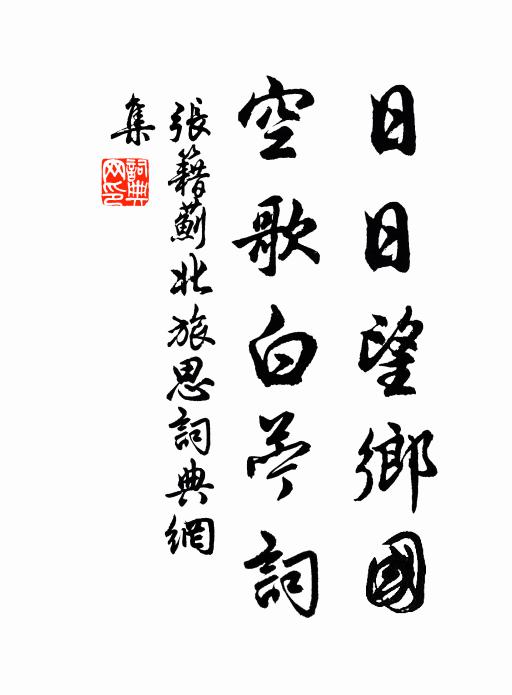 日日望鄉國
空歌白苧詞
張籍薊北旅思詞典網
集
詞典网印